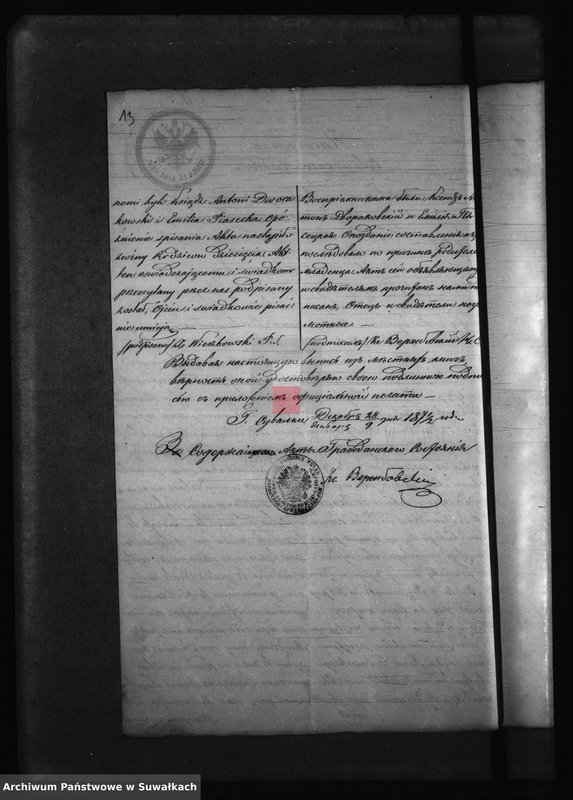 13
nemi byli Ksiądz Antoni Dwora
kowski i Emilia Piasecka Opó
źnienie spisania Aktu nastąpiło
z winy Rodziców Dziecięcia. Akt
ten oświadczającemu i świadkom
przeczytany przez nas podpisany
został, Ojciec i świadkowie pisać
nie umieją
(podpisano) X. Wierzbowski
Восприемниками были Ксендз Ан
тон Двораковский и Емилия Пя
сецкая. Опоздание составления
последовало по причине родителей
младенца Акт сей объявляющему
и свидетелям прочитан нами под
писан, Отец и свидетели негра
мотные
(подписал) Кс Вержбовский
Выдавая настоящую выпись из местных книг
верность оной удостоверяю своею подлинною подпи
сью с приложением официальной печати
Г. Сувалки Декабря 28 / Января 9 дня 187½ года
За Содержащего Акты Гражданского Состояния
Кс Вержбовский
Archiwum Państwowe w Suwałkach